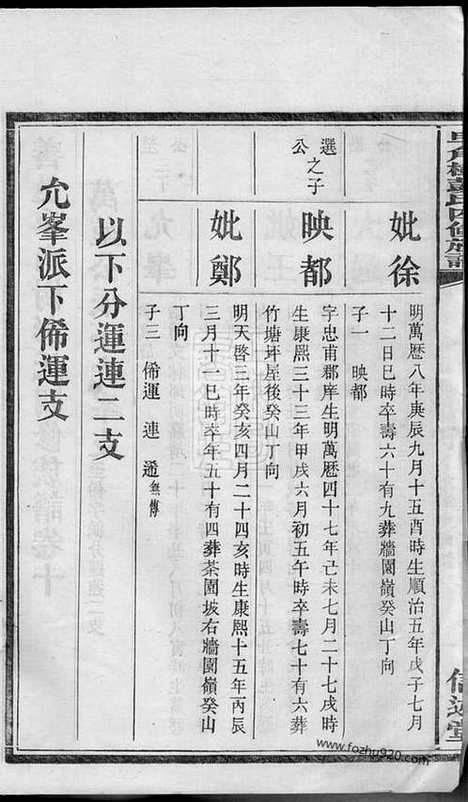 妣徐
明萬曆八年庚辰九月十五酉時生順治五年戊子七月
十二日巳時卒壽六十有九葬牆園嶺癸山丁向
子一　映都
選之子
公
映都
字忠甫郡庠生明萬曆四十七年己未七月二十七戌時
生康熙三十三年甲戌六月初五午時卒壽七十有六葬
竹塘坪屋後癸山丁向
妣鄭
明天啓三年癸亥四月二十四亥時生康熙十五年丙辰
三月十一巳時卒年五十有四葬茶園坡右牆園嶺癸山
丁向
子三　俙運　連　遞無傳
以下分運連二支
允峯派下俙運支
www.fozhu920.com